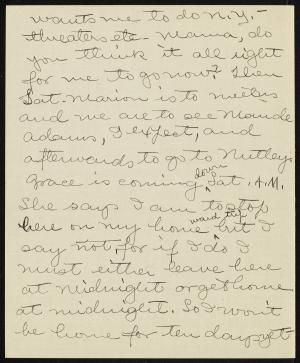 wants me to do N.Y. -
theaters etc. Mama, do
you think it all right
for me to go now? Then
Sat. Marion is to meet us
and we are to see Maude
Adams, I expect, and
afterwards to go to Nutley.
Grace is coming down Sat. A.M.
She says I am to stop
here on my home ward trip but I
say not, for if I do I
must either leave here
at midnight or get home
at midnight. So I won't
be home for ten days yet